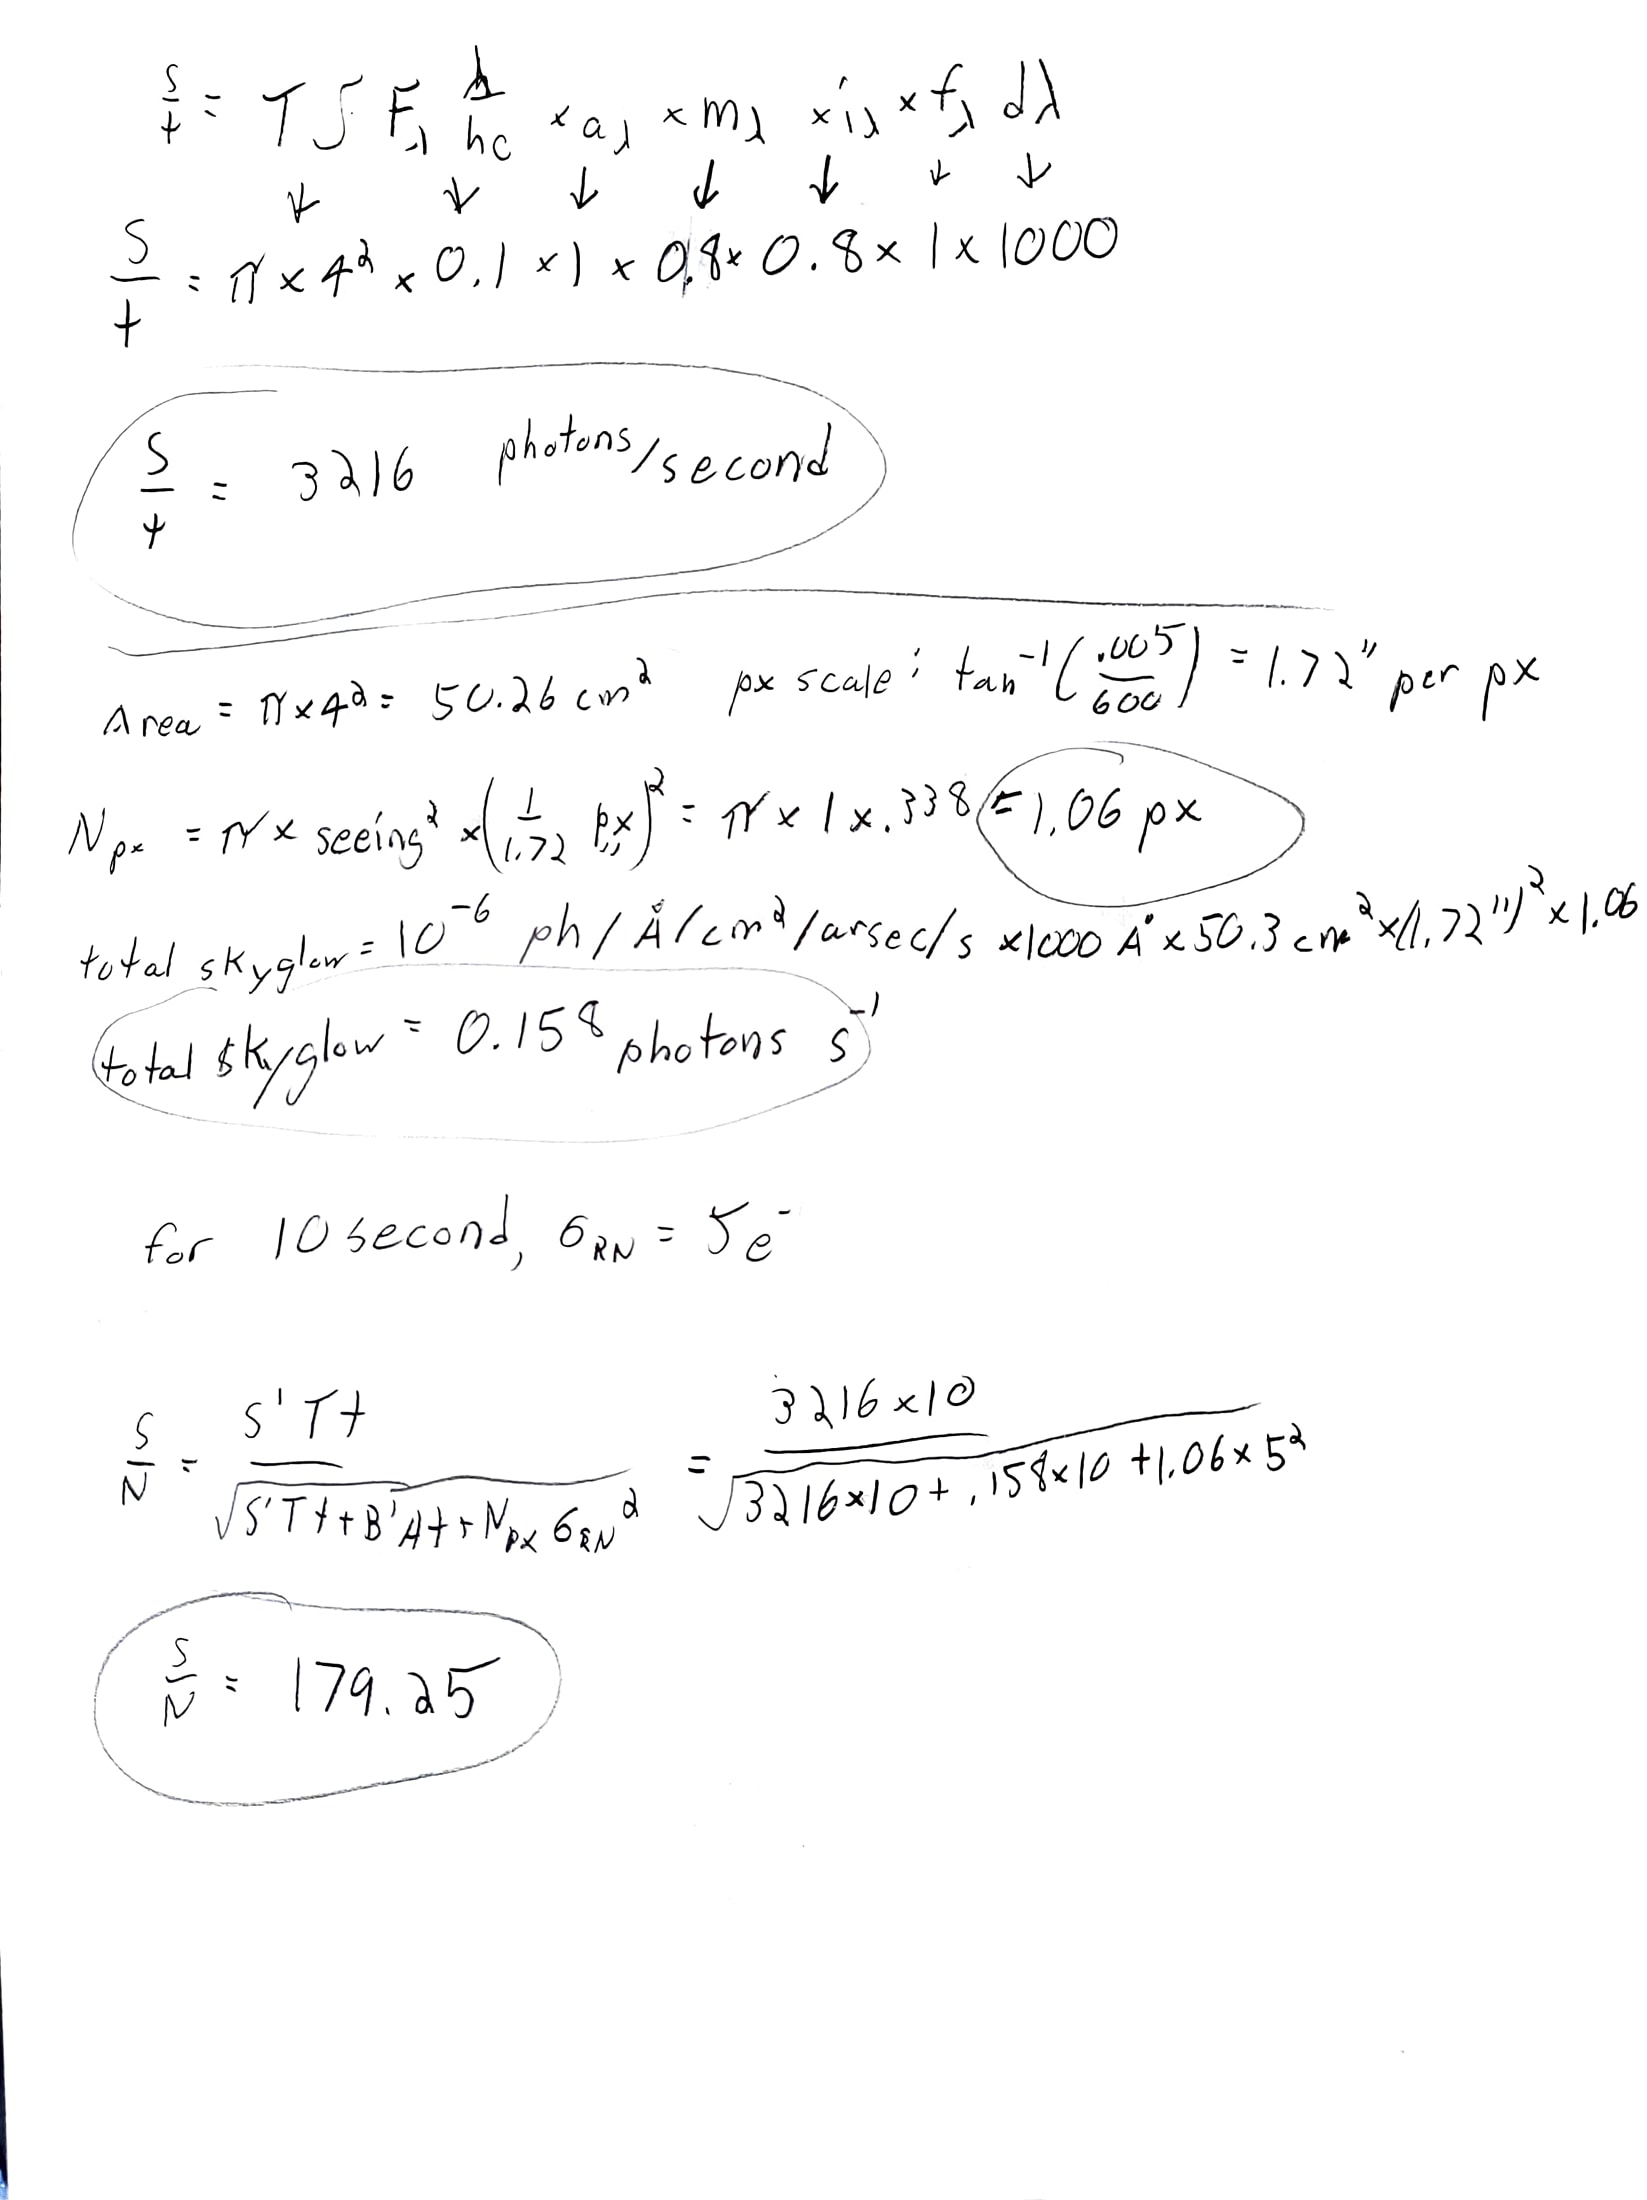 S/t = T ∫ Fλ λ/hc × aλ × mλ × iλ × fλ dλ
↓ ↓ ↓ ↓ ↓ ↓ ↓
S/t = π × 4² × 0.1 × 1 × 0.8 × 0.8 × 1 × 1000
S/t = 3216 photons/second
Area = π × 4² = 50.26 cm² px scale : tan⁻¹(.005/600) = 1.72" per px
Npx = π × seeing² × (1/1.72 px/")² = π × 1 × .338 = 1.06 px
total skyglow = 10⁻⁶ ph/Å/cm²/arsec/s × 1000 Å × 50.3 cm² × (1.72")² × 1.06
total skyglow = 0.158 photons s⁻¹
for 10 second, σRN = 5 e⁻
S/N = S'Tt / √(S'Tt + B'At + Npx σRN²) = 3216×10 / √(3216×10 + .158×10 + 1.06 × 5²)
S/N = 179.25